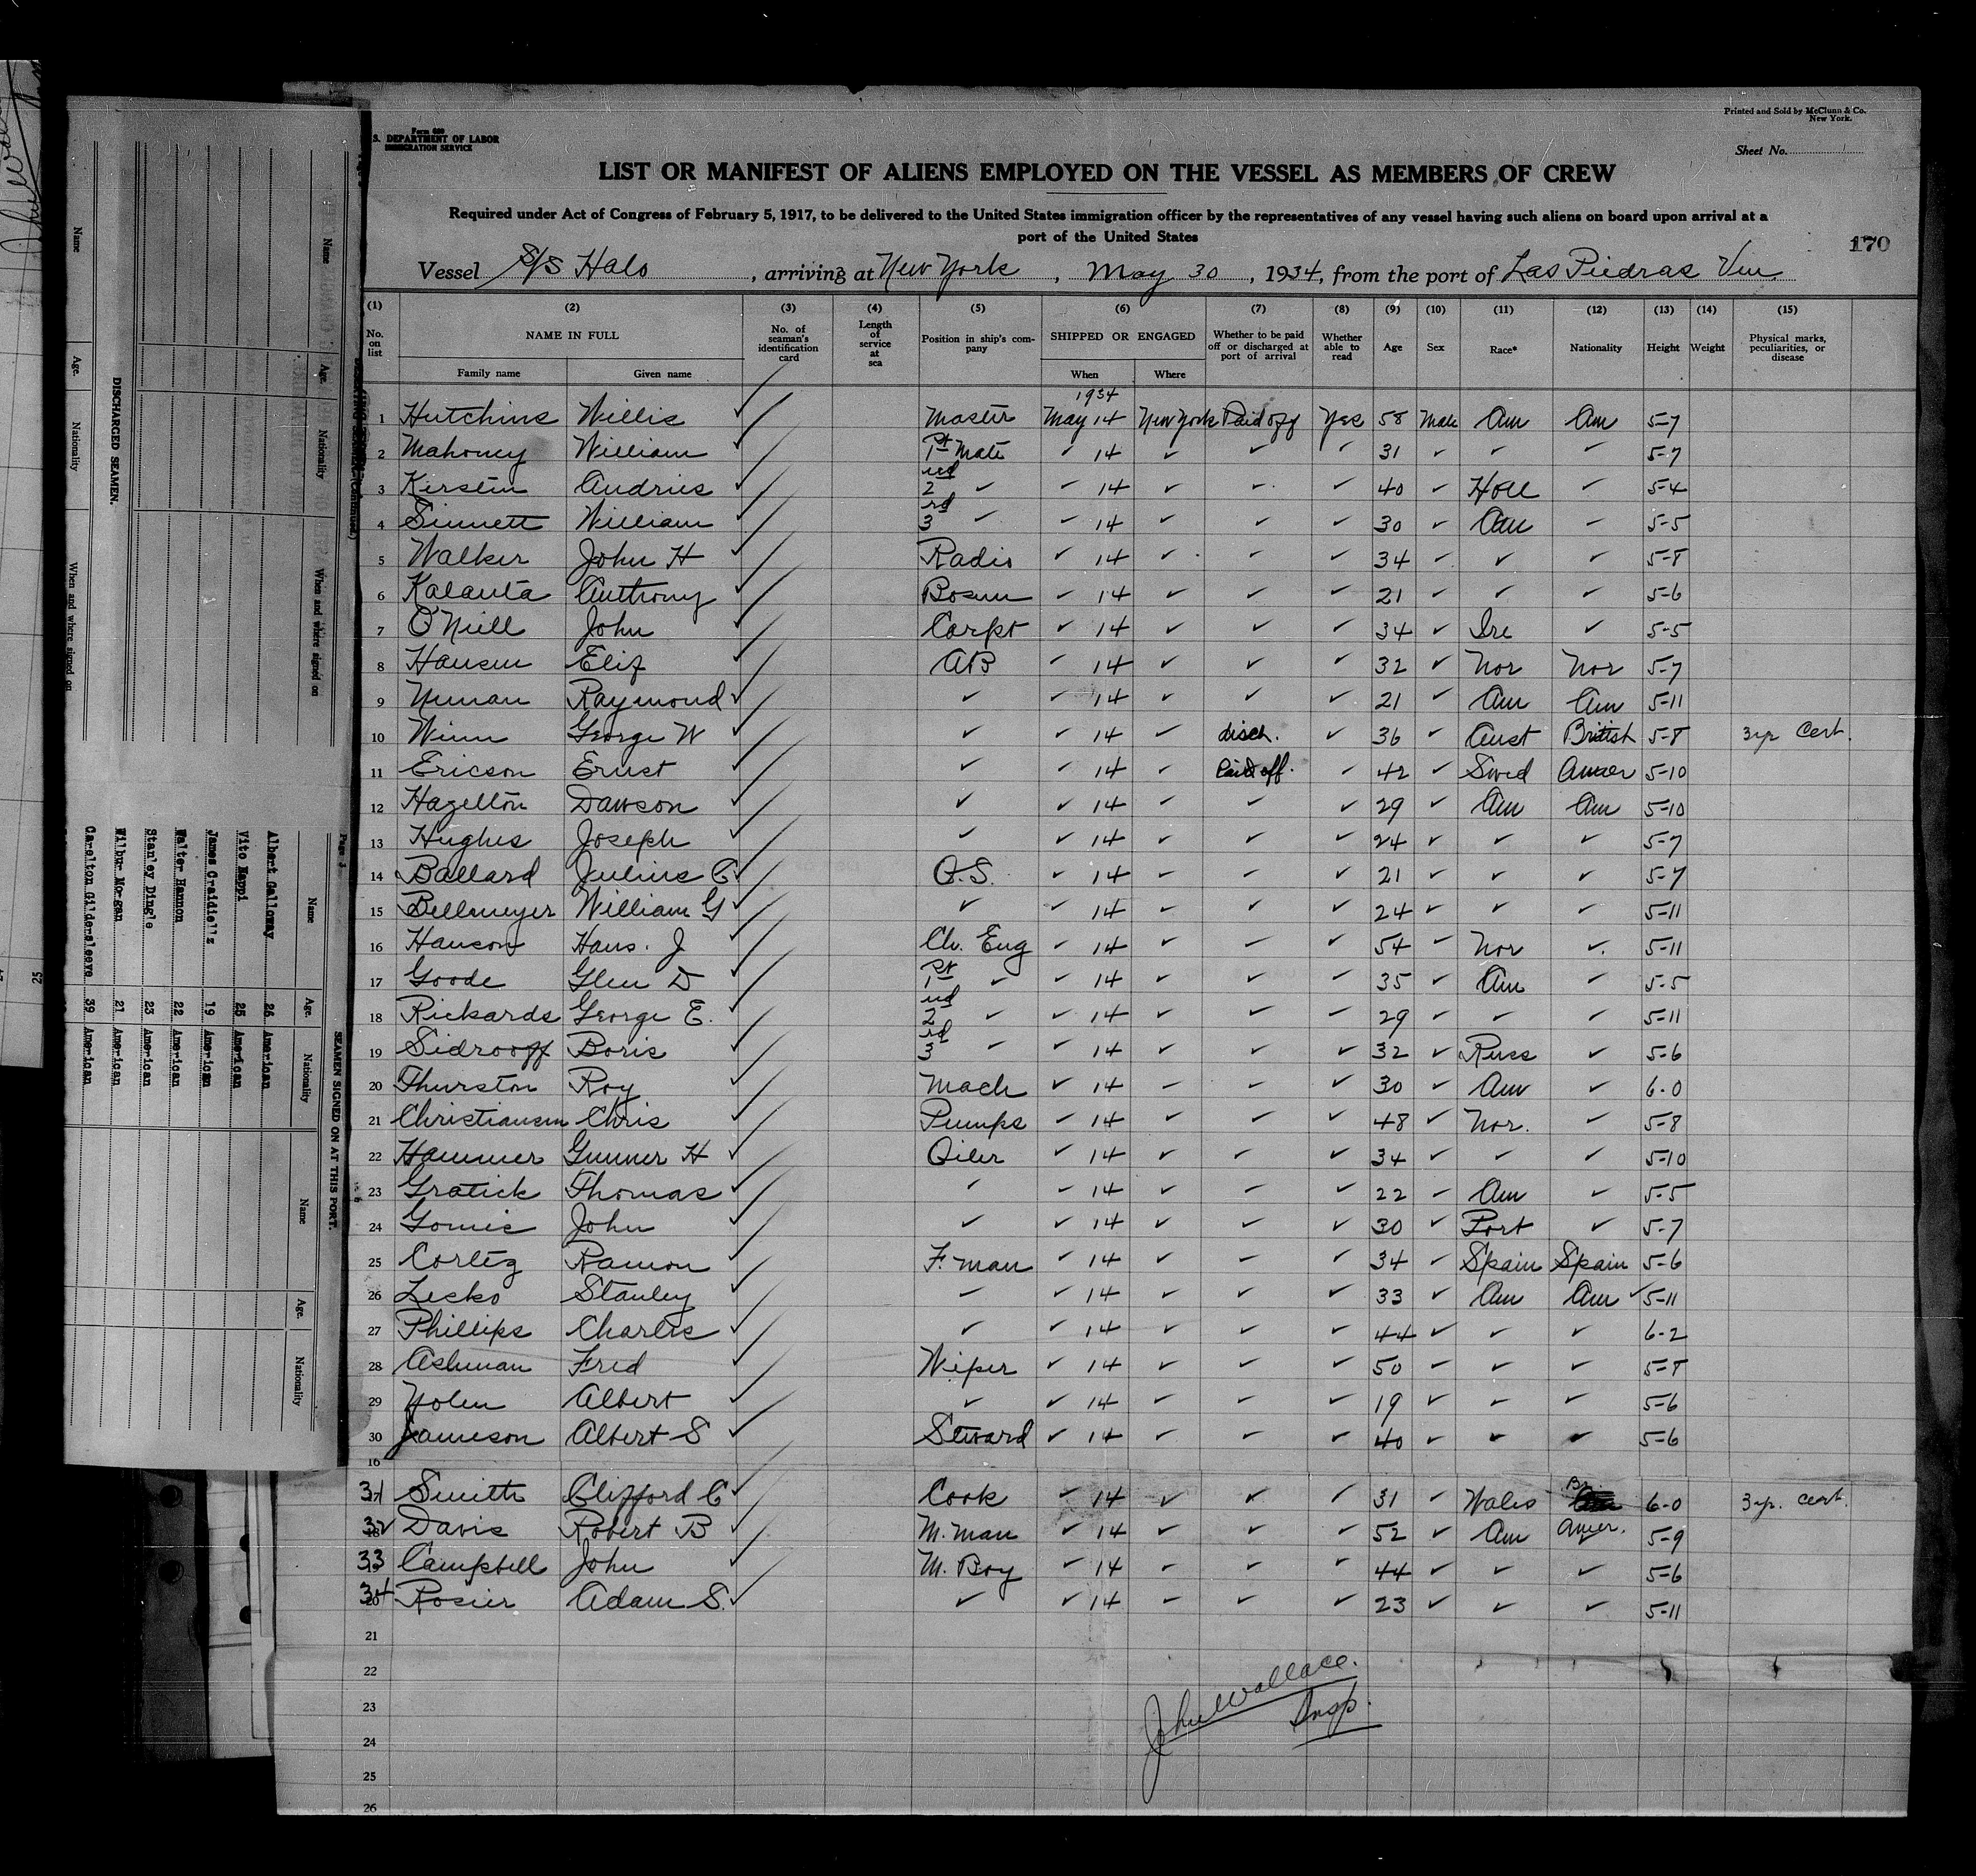 Printed and Sold by McClunn & Co.
New York.
Form 680
S. DEPARTMENT OF LABOR
IMMIGRATION SERVICE
Sheet No.
LIST OR MANIFEST OF ALIENS EMPLOYED ON THE VESSEL AS MEMBERS OF CREW
Required under Act of Congress of February 5, 1917, to be delivered to the United States immigration officer by the representatives of any vessel having such aliens on board upon arrival at a
port of the United States
170
Vessel S/S Halo, arriving at New York, May 30, 1934, from the port of Las Piedras Ven.
(1) (2) (3) (4) (5) (6) (7) (8) (9) (10) (11) (12) (13) (14) (15)
No. on list NAME IN FULL No. of seaman's identification card Length of service at sea Position in ship's company SHIPPED OR ENGAGED Whether to be paid off or discharged at port of arrival Whether able to read Age Sex Race* Nationality Height Weight Physical marks, peculiarities, or disease
Family name Given name When Where
1934
1 Hutchins Willis ✓ Master May 14 New York Paid off Yes 58 Male Am Am 5-7
2 Mahoney William ✓ 1st Mate ✓ 14 ✓ ✓ ✓ 31 ✓ ✓ ✓ 5-7
3 Kirstein Andries ✓ 2nd ✓ ✓ 14 ✓ ✓ ✓ 40 ✓ Holl ✓ 5-4
4 Sinnett William ✓ 3rd ✓ ✓ 14 ✓ ✓ ✓ 30 ✓ Am ✓ 5-5
5 Walker John H ✓ Radio ✓ 14 ✓ ✓ ✓ 34 ✓ ✓ ✓ 5-8
6 Kalanta Anthony ✓ Bosun ✓ 14 ✓ ✓ ✓ 21 ✓ ✓ ✓ 5-6
7 O'Neill John ✓ Carpt ✓ 14 ✓ ✓ ✓ 34 ✓ Ire ✓ 5-5
8 Hansen Elif ✓ AB ✓ 14 ✓ ✓ ✓ 32 ✓ Nor Nor 5-7
9 Raymond ✓ ✓ ✓ 14 ✓ ✓ ✓ 21 ✓ Am Am 5-11
10 Winn George W ✓ ✓ ✓ 14 ✓ disch. ✓ 36 ✓ Aust British 5-8 3 yr Cert.
11 Ericson Ernst ✓ ✓ ✓ 14 ✓ Paid off. ✓ 42 ✓ Swed Amer 5-10
12 Hazelton Dawson ✓ ✓ ✓ 14 ✓ ✓ ✓ 29 ✓ Am Am 5-10
13 Hughes Joseph ✓ ✓ ✓ 14 ✓ ✓ ✓ 24 ✓ ✓ ✓ 5-7
14 Ballard Julius C. ✓ O.S. ✓ 14 ✓ ✓ ✓ 21 ✓ ✓ ✓ 5-7
15 Bellmeyer William G ✓ ✓ ✓ 14 ✓ ✓ ✓ 24 ✓ ✓ ✓ 5-11
16 Hanson Hans. J ✓ Ch. Eng ✓ 14 ✓ ✓ ✓ 54 ✓ Nor ✓ 5-11
17 Goode Glen D ✓ 1st ✓ ✓ 14 ✓ ✓ ✓ 35 ✓ Am ✓ 5-5
18 Rickards George E. ✓ 2nd ✓ ✓ 14 ✓ ✓ ✓ 29 ✓ ✓ ✓ 5-11
19 Sidrooff Boris ✓ 3rd ✓ ✓ 14 ✓ ✓ ✓ 32 ✓ Russ ✓ 5-6
20 Thurston Roy ✓ Mach ✓ 14 ✓ ✓ ✓ 30 ✓ Am ✓ 6-0
21 Christiansen Chris ✓ Pumps ✓ 14 ✓ ✓ ✓ 48 ✓ Nor. ✓ 5-8
22 Hammer Gunner H ✓ Oiler ✓ 14 ✓ ✓ ✓ 34 ✓ ✓ ✓ 5-10
23 Gratick Thomas ✓ ✓ ✓ 14 ✓ ✓ ✓ 22 ✓ Am ✓ 5-5
24 Gomis John ✓ ✓ ✓ 14 ✓ ✓ ✓ 30 ✓ Port ✓ 5-7
25 Cortez Ramon ✓ F. man ✓ 14 ✓ ✓ ✓ 34 ✓ Spain Spain 5-6
26 Lesko Stanley ✓ ✓ ✓ 14 ✓ ✓ ✓ 33 ✓ Am Am ✓ 5-11
27 Phillips Charles ✓ ✓ ✓ 14 ✓ ✓ ✓ 44 ✓ ✓ ✓ 6-2
28 Ashman Fred ✓ Wiper ✓ 14 ✓ ✓ ✓ 50 ✓ ✓ ✓ 5-8
29 Yolen Albert ✓ ✓ ✓ 14 ✓ ✓ ✓ 19 ✓ ✓ ✓ 5-6
30 Jameson Albert S ✓ Steward ✓ 14 ✓ ✓ ✓ 40 ✓ ✓ ✓ 5-6
16
31 Smith Clifford C ✓ Cook ✓ 14 ✓ ✓ ✓ 31 ✓ Wales Br. 6-0 3 yr. cert.
32 Davis Robert B ✓ M. man ✓ 14 ✓ ✓ ✓ 52 ✓ Am Amer. 5-9
33 Campbell John ✓ M. Boy ✓ 14 ✓ ✓ ✓ 44 ✓ ✓ ✓ 5-6
34 Rosier Adam S. ✓ ✓ ✓ 14 ✓ ✓ ✓ 23 ✓ ✓ ✓ 5-11
21
22
23
24
25
26
John Wallace.
Insp.
Name Age. Nationality When and where signed on
DISCHARGED SEAMEN.
Name Age. Nationality When and where signed on
Page 3
SEAMEN SIGNED ON AT THIS PORT.
Name Age. Nationality Name Age. Nationality
Albert Galloway 26 American
Vito Nappi 25 American
James Craidiells 19 American
Walter Hannon 22 American
Stanley Dingle 23 American
Wilbur Morgan 21 American
Carelton Gildersleeve 39 American